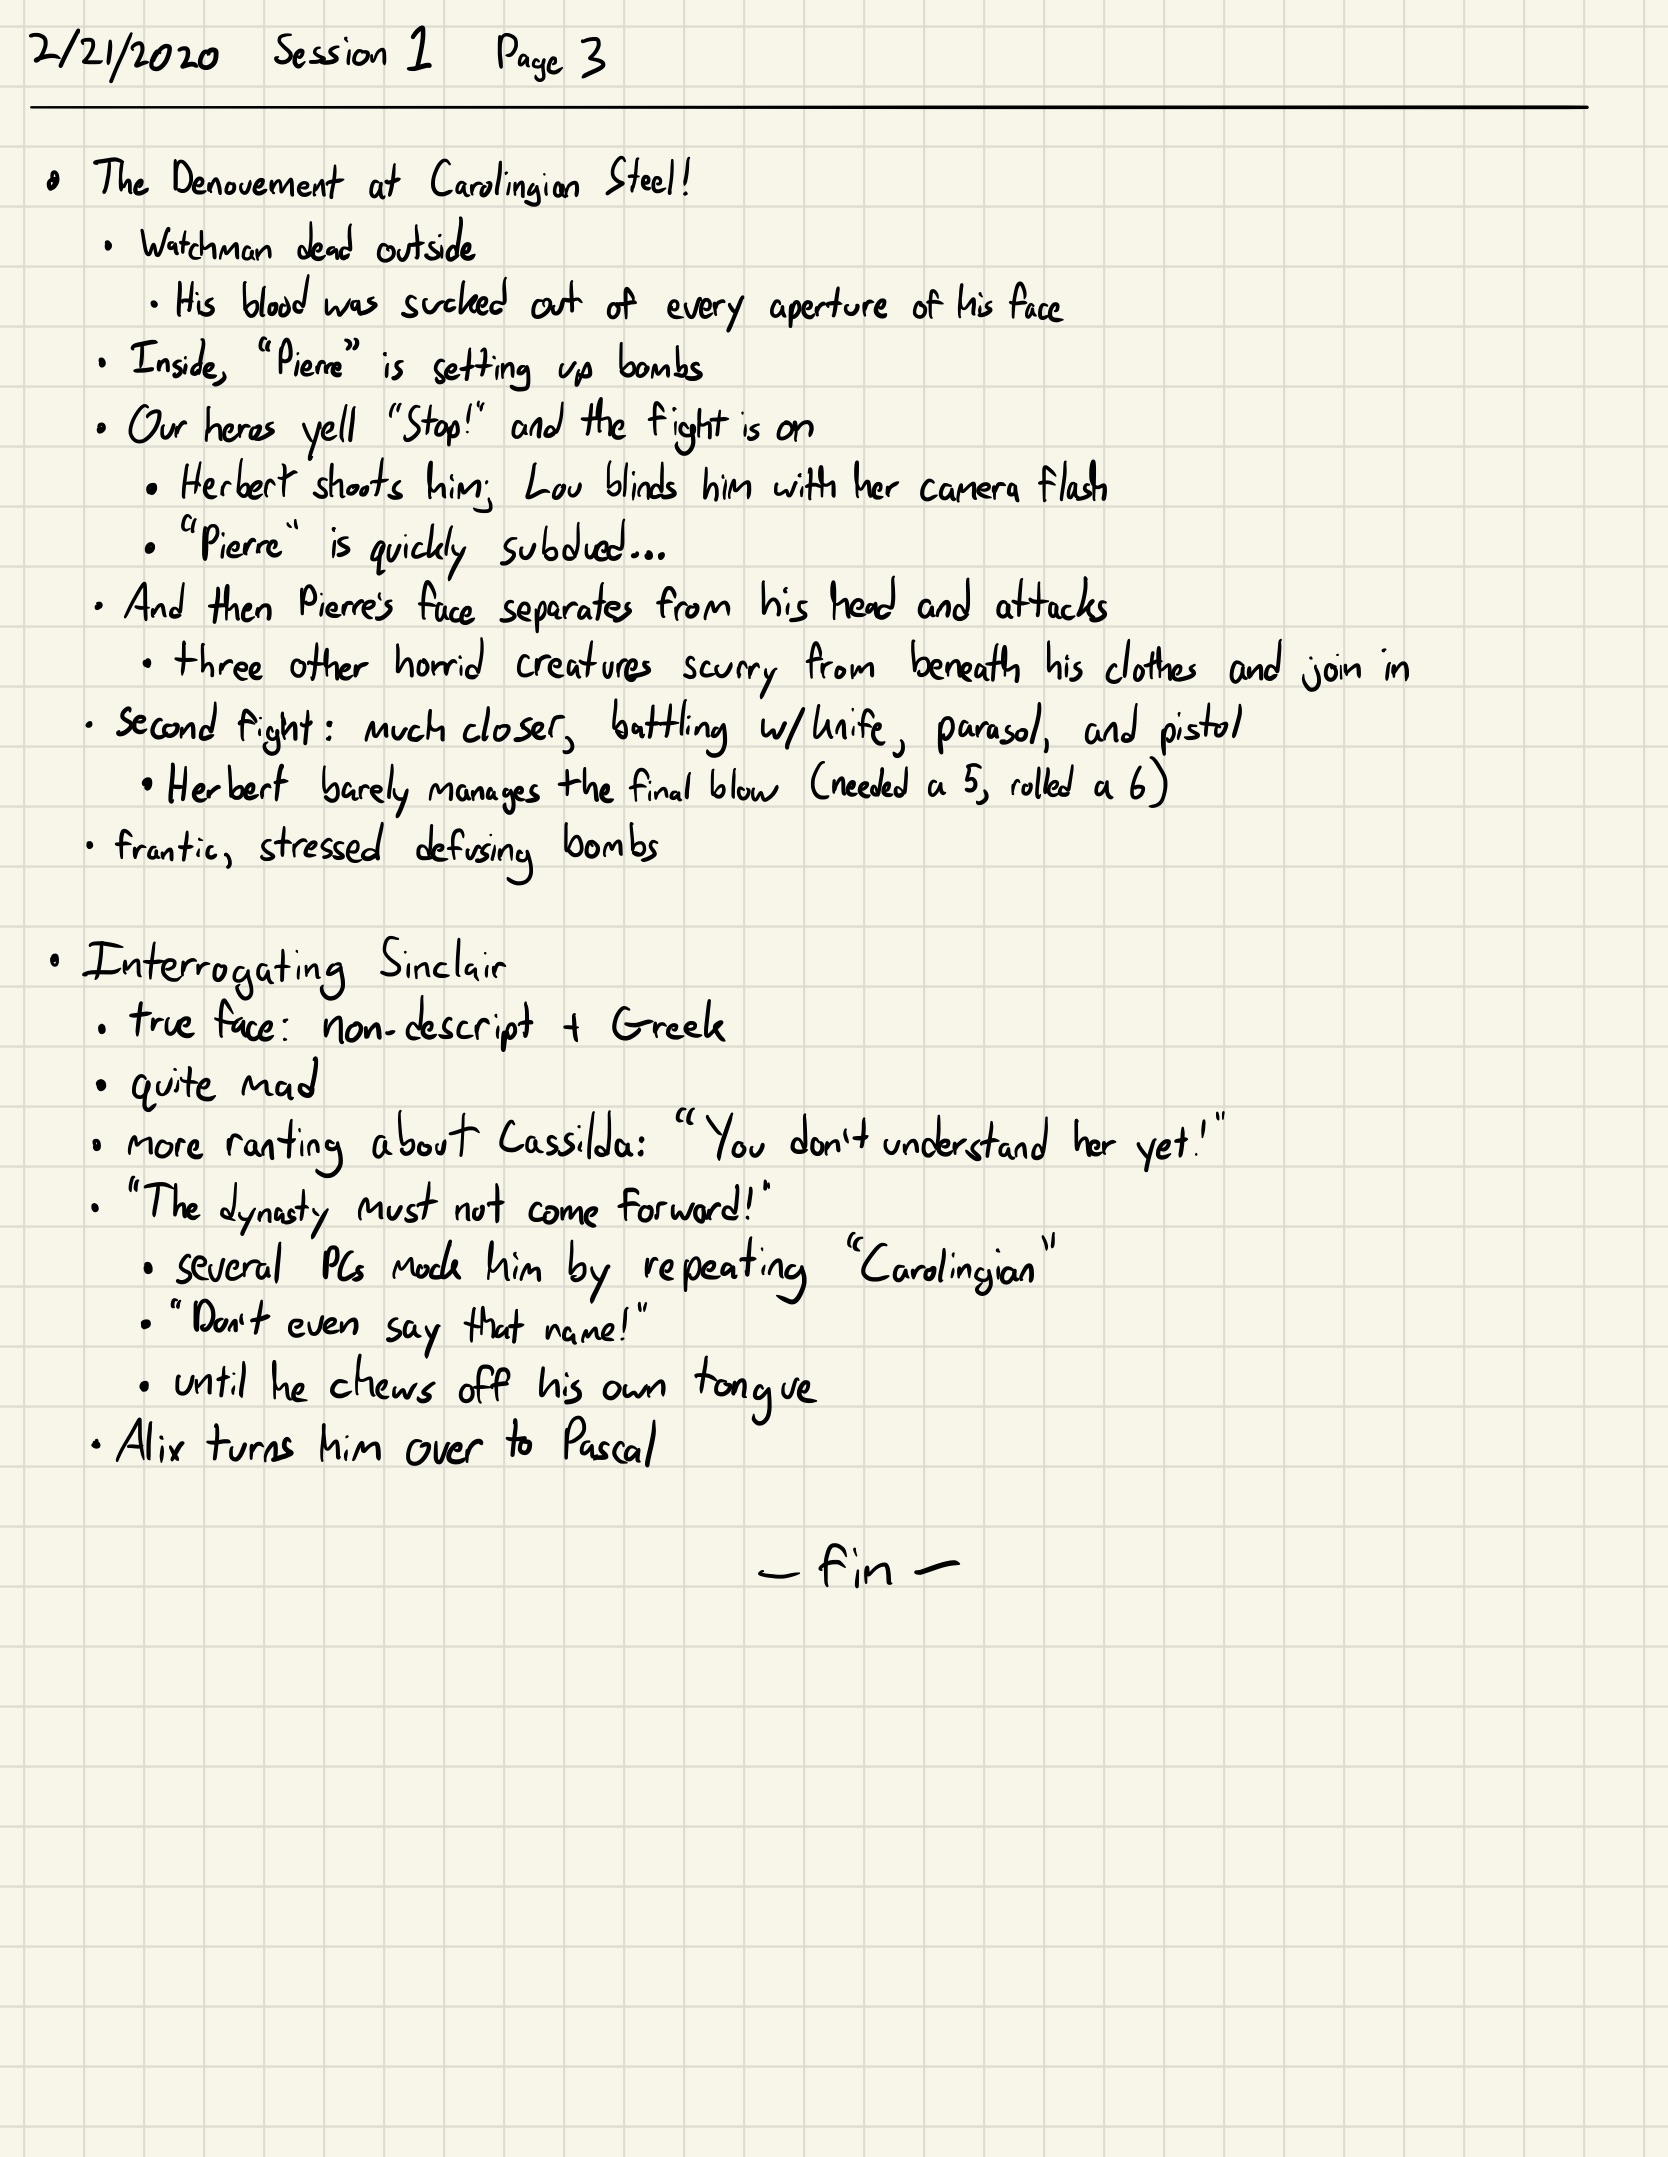 2/21/2020 Session 1 Page 3
• The Denouement at Carolingian Steel!
• Watchman dead outside
• His blood was sucked out of every aperture of his face
• Inside, "Pierre" is setting up bombs
• Our heros yell "Stop!" and the fight is on
• Herbert shoots him; Lou blinds him with her camera flash
• "Pierre" is quickly subdued...
• And then Pierre's face separates from his head and attacks
• three other horrid creatures scurry from beneath his clothes and join in
• second fight: much closer, battling w/ knife, parasol, and pistol
• Herbert barely manages the final blow (needed a 5, rolled a 6)
• frantic, stressed defusing bombs
• Interrogating Sinclair
• true face: non-descript + Greek
• quite mad
• more ranting about Cassilda: "You don't understand her yet!"
• "The dynasty must not come forward!"
• several PCs mock him by repeating "Carolingian"
• "Don't even say that name!"
• until he chews off his own tongue
• Alix turns him over to Pascal
– fin –